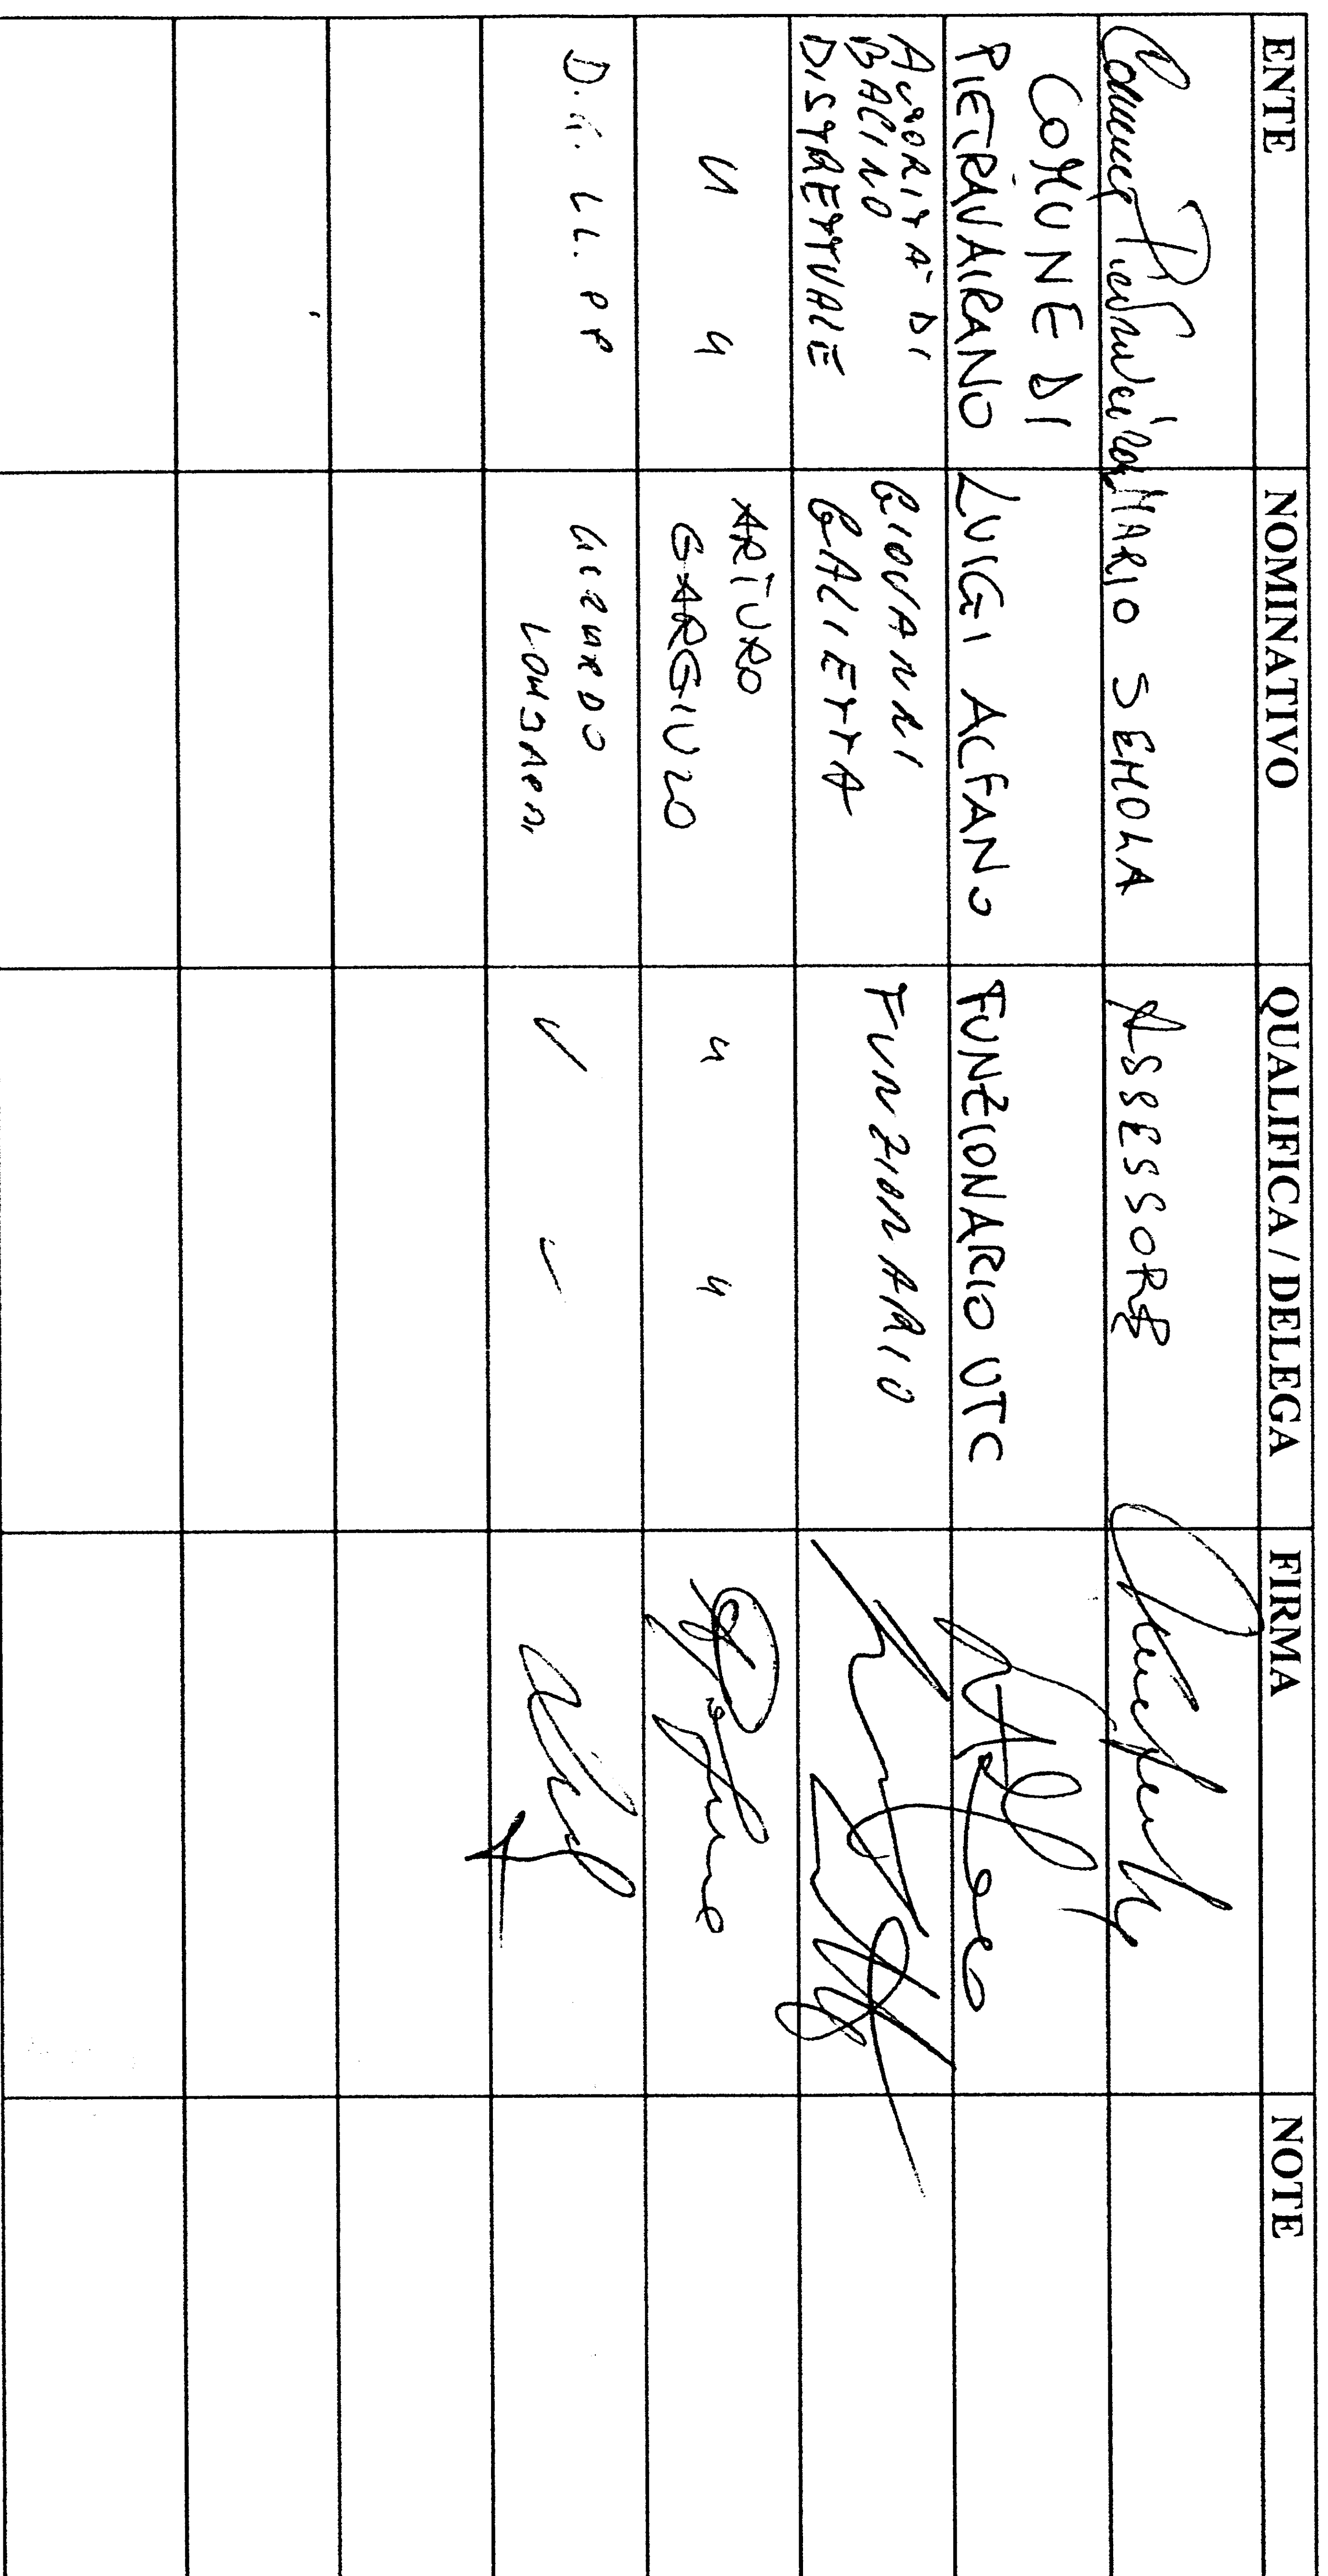 ENTE NOMINATIVO QUALIFICA / DELEGA FIRMA NOTE
Comune Pietravairano MARIO SEMOLA ASSESSORE
COMUNE DI
PIETRAVAIRANO LUIGI ALFANO FUNZIONARIO UTC
AUTORITÀ DI
BACINO
DISTRETTUALE
GIOVANNI
GALIETTA
FUNZIONARIO
" "
ARTURO
GARGIULO
" "
D.G. LL. PP
GERARDO